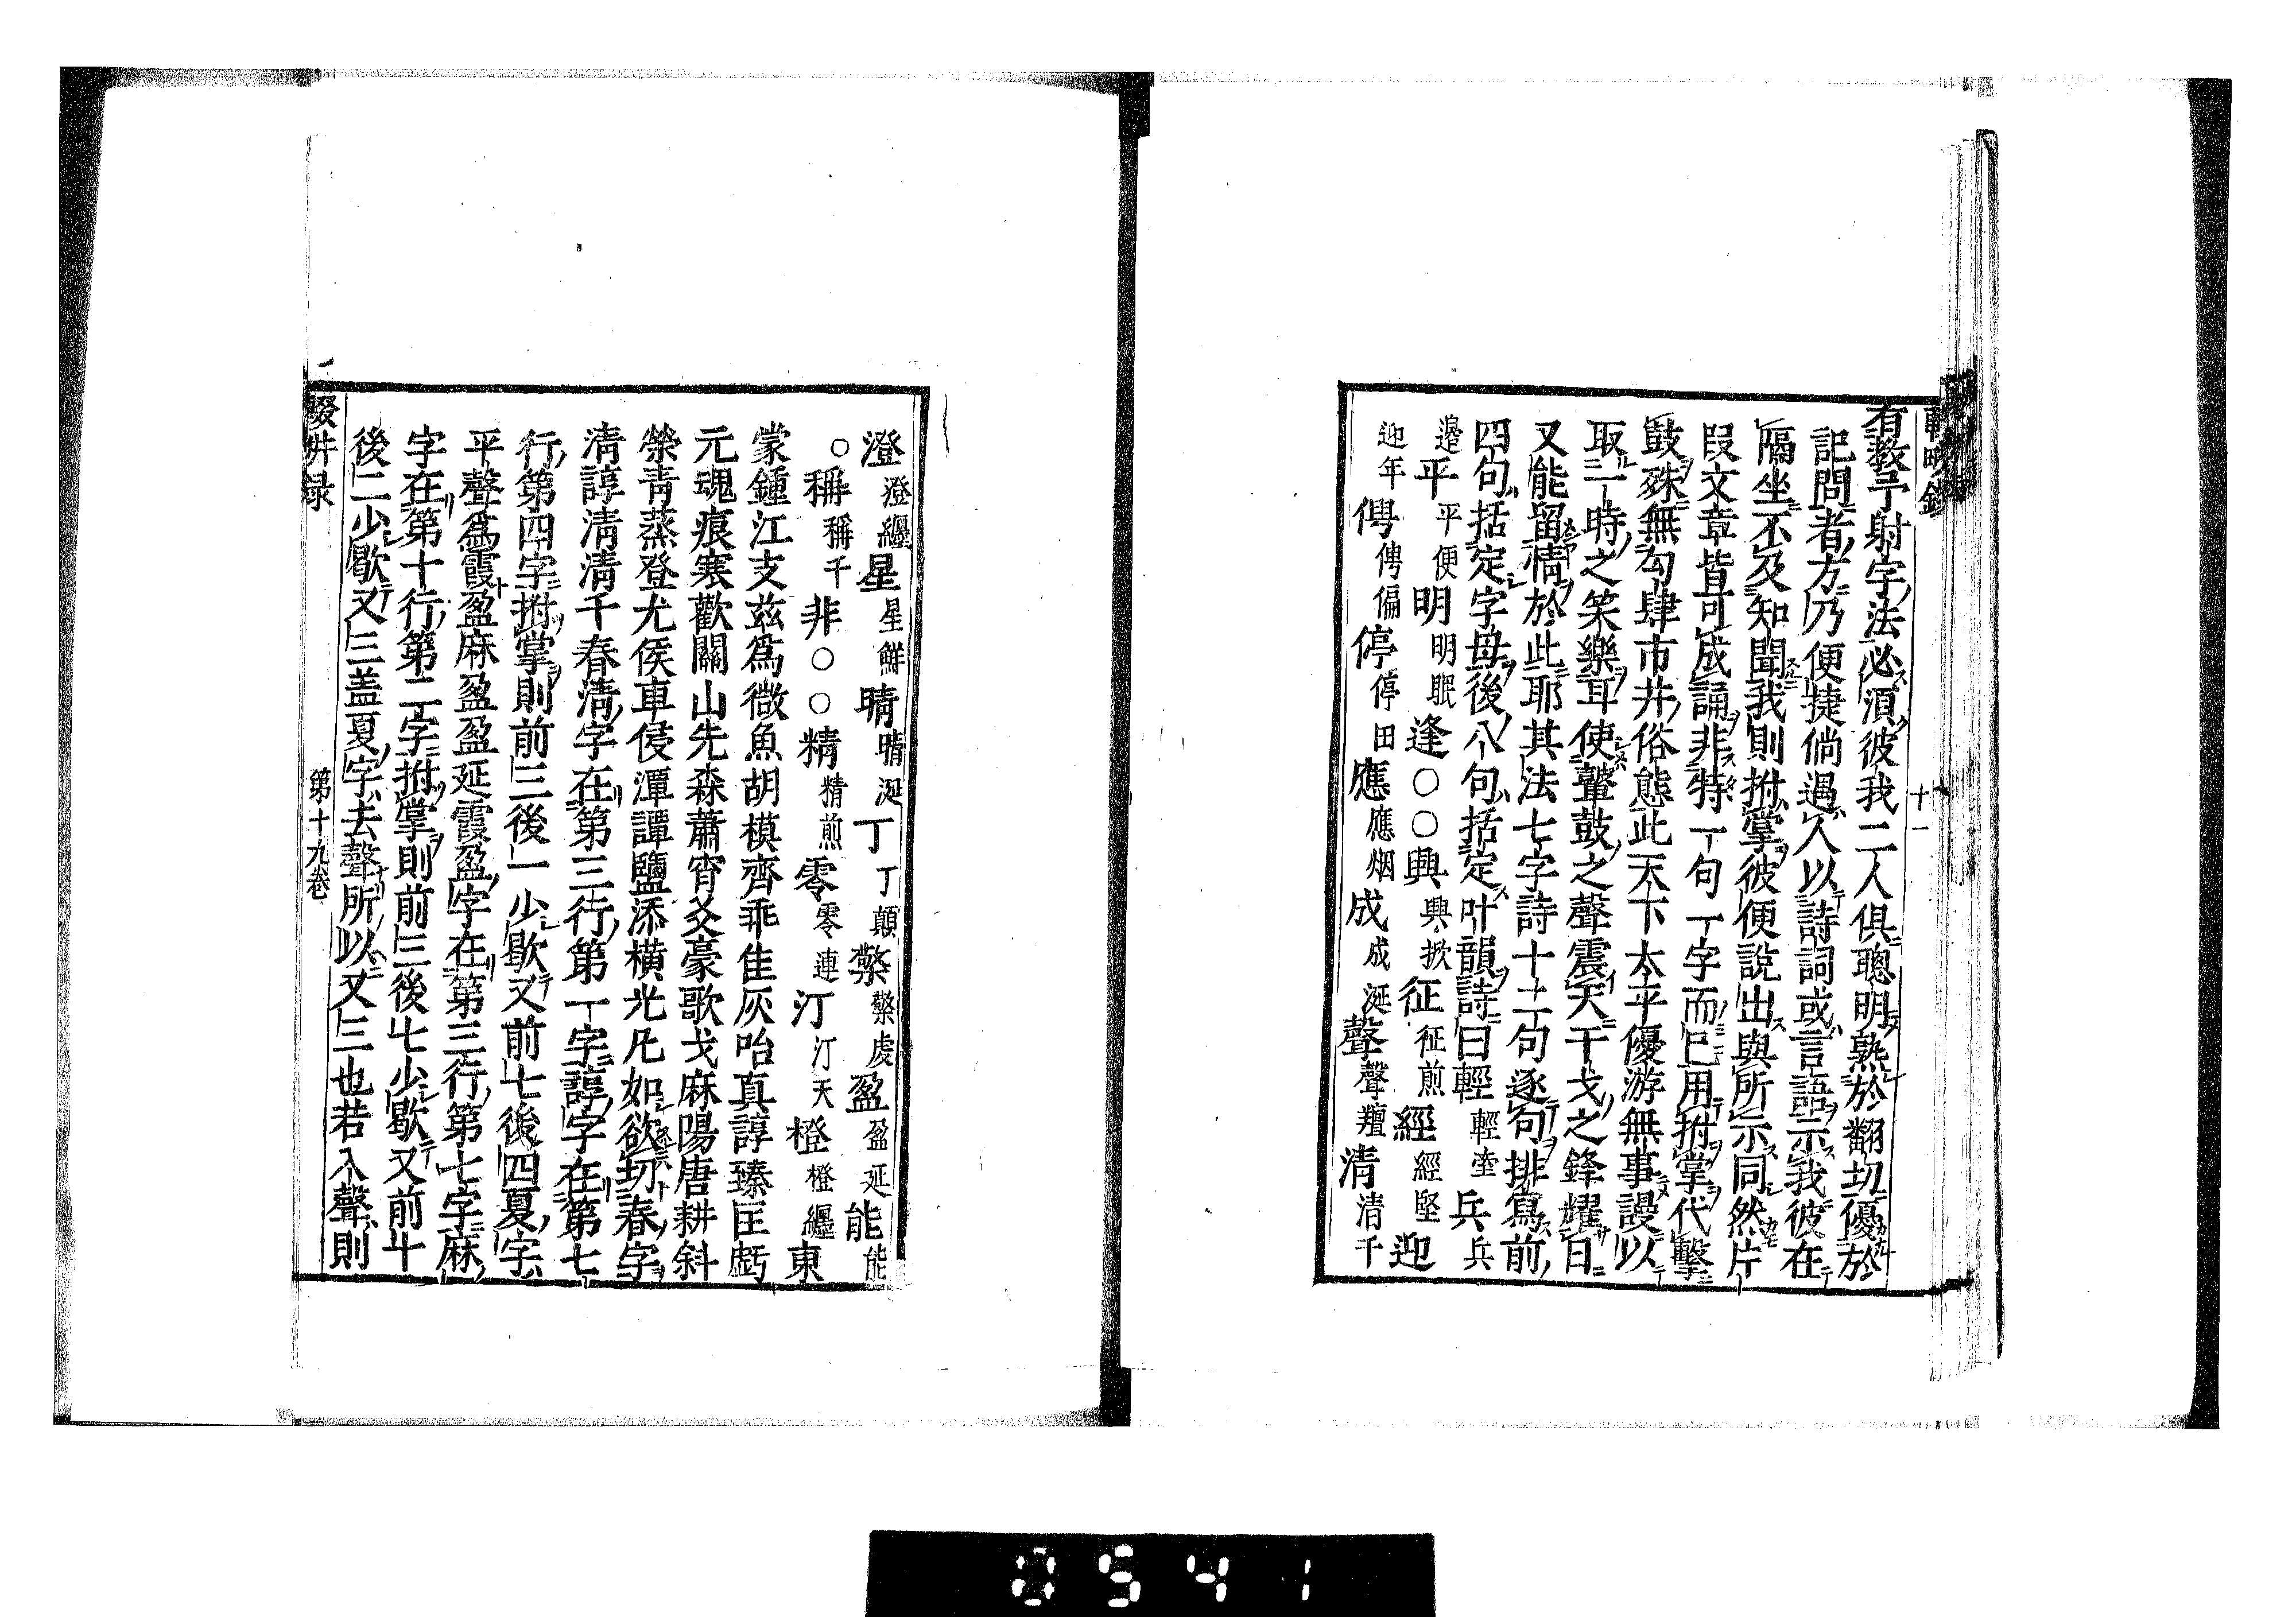 十一
有教予射字法必須彼我二人俱聰明熟於翻切優於
記問者方乃便捷倘遇人以詩詞或言語示我彼在
隔坐不及知聞我則拊掌彼便說出與所示同然片
段文章皆可成誦非特一句一字而已用拊掌代擊
鼓殊無勾肆市井俗態此天下太平優游無事謾以
取一時之笑樂耳使鼙鼓之聲震天干戈之鋒耀日
又能留情於此耶其法七字詩十二句逐句排寫前
四句括定字母後八句括定叶韻詩曰輕輕牽兵兵
邊平平便明明眠逢○○興興掀征征煎經經堅迎
迎年俜俜偏停停田應應烟成成涎聲聲羶清清千
澄澄纏星星鮮晴晴涎丁丁顛檠檠虔盈盈延能能
○稱稱千非○○精精煎零零連汀汀天橙橙纏東
蒙鍾江支茲爲微魚胡模齊乖佳灰咍真諄臻匡虧
元魂痕寒歡關山先森蕭宵爻豪歌戈麻陽唐耕斜
榮青蒸登尤侯車侵潭譚鹽添橫光凡如欲切春字
清諄清清千春清字在第三行第一字諄字在第七
行第四字拊掌則前三後一少歇又前七後四夏字
平聲爲霞盈麻盈盈延霞盈字在第三行第七字麻
字在第十行第二字拊掌則前三後七少歇又前十
後二少歇又三盖夏字去聲所以又三也若入聲則
輟畊录
第十九卷
0541